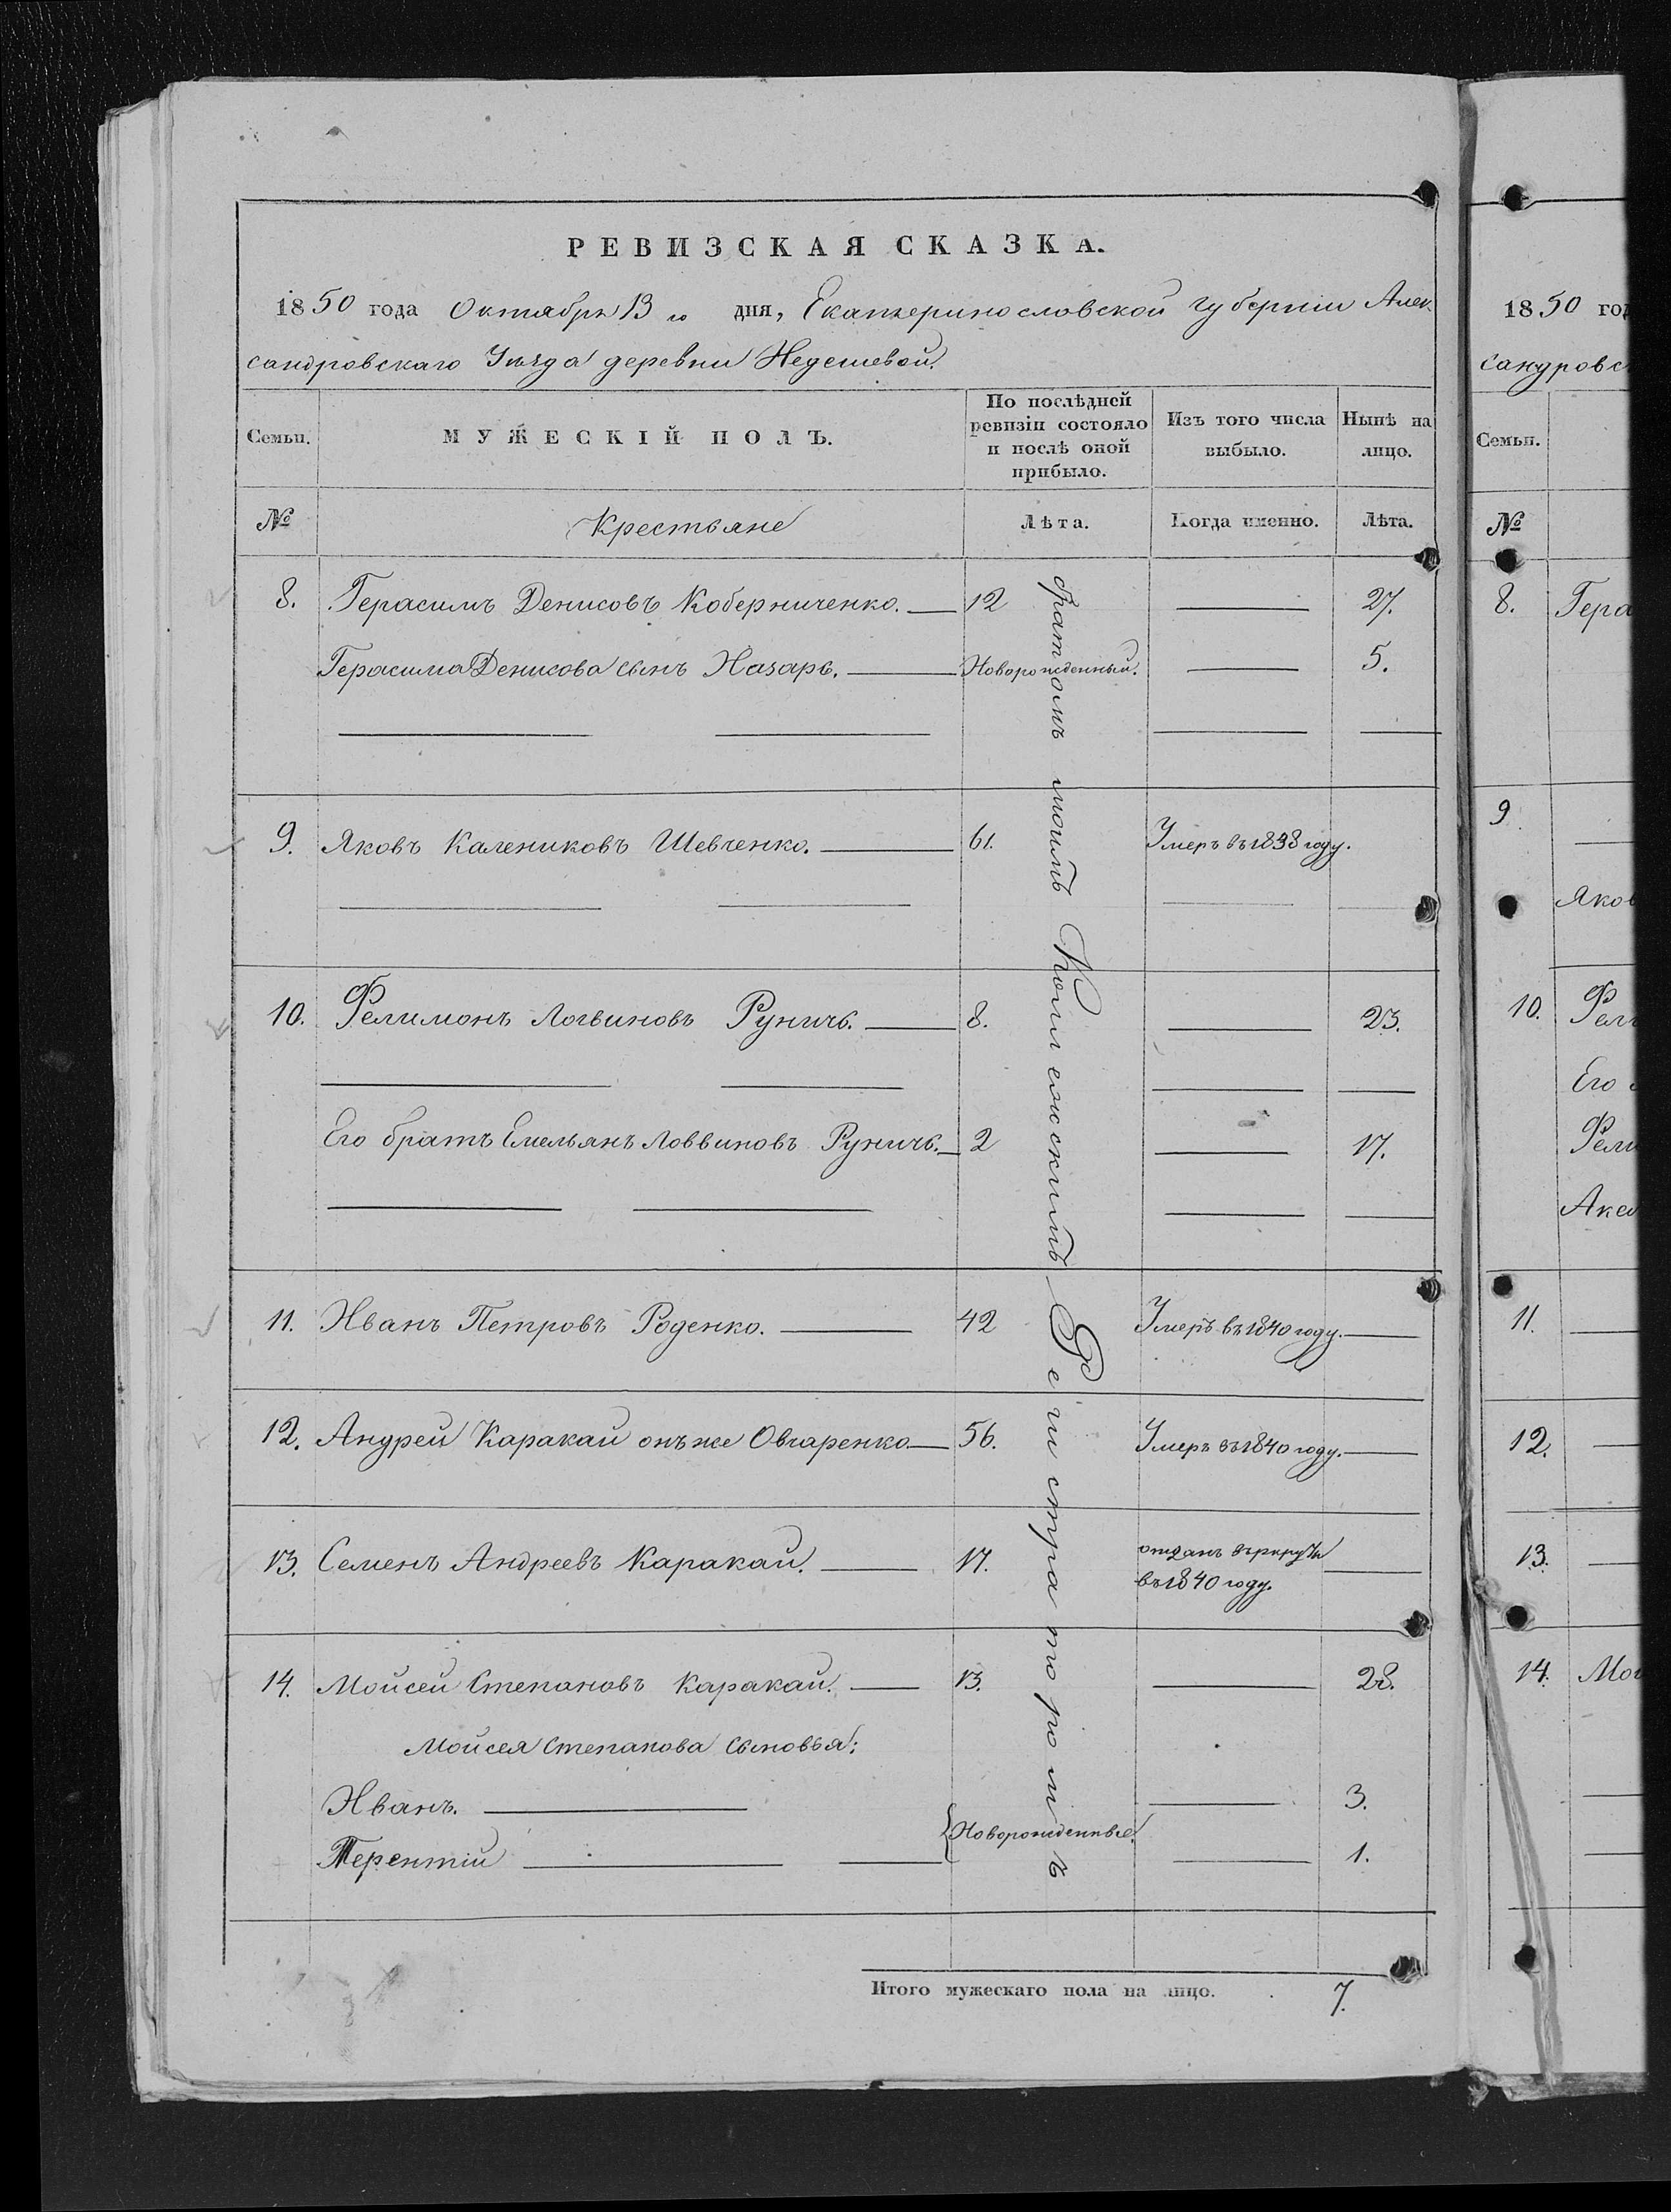 РЕВИЗСКАЯ СКАЗКА.
1850 года Октября 13 го дня, Екатеринославской губернии Алек
сандровскаго Уезда деревни Недешевой.
Семьи.
МУЖЕСКІЙ ПОЛЪ.
По послѣдней
ревизіи состояло
и послѣ оной
прибыло.
Изъ того числа
выбыло.
Нынѣ на
лицо.
№ Крестьяне Лѣта. Когда именно. Лѣта.
8. Герасимъ Денисовъ Коберниченко. 12 27.
Герасима Денисова сынъ Назаръ. Новорожденный. 5.
9. Яковъ Калениковъ Шевченко. 61. Умеръ въ 1838 году.
10. Фелимонъ Логвиновъ Руничь. 8. 23.
Его братъ Емельянъ Ловвиновъ Руничь. 2 17.
11. Иванъ Петровъ Роденко. 42 Умеръ въ 1840 году.
12. Андрей Каракай онъ же Овчаренко 56. Умеръ въ 1840 году.
13. Семенъ Андреевъ Каракай. 17. отданъ въ рекруты
въ 1840 году.
14. Мойсей Степановъ Каракай. 13. 28.
Мойсея Степанова сыновья:
Иванъ. 3.
Новорожденные
Терентій 1.
братомъ моимъ Коллежскимъ Регистраторомъ
Итого мужескаго пола на лицо. 7.
1850 год
сандровс
Семьи.
№
8. Гера
9
Яков
10. Фел
Его
Фели
Акс
11.
12.
13.
14. Мой